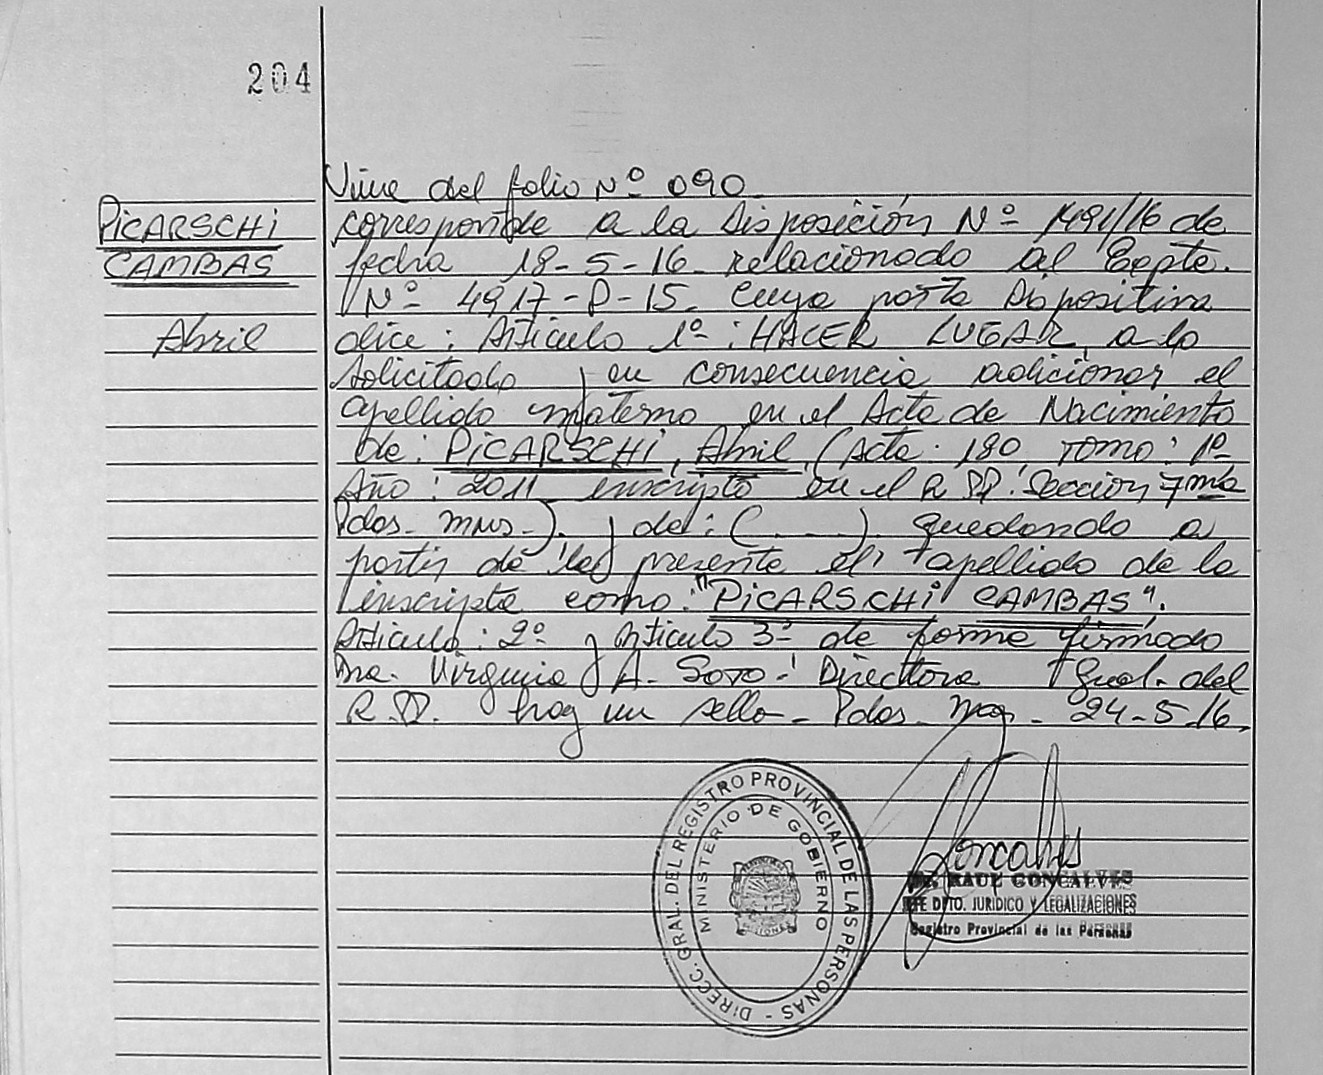 204
PICARSCHI
CAMBAS
Abril
Viene del folio Nº 090
corresponde a la Disposición Nº 1491/16 de
fecha 18-5-16 relacionado al Expte.
Nº 4917-P-15. Cuya parte Dispositiva
dice: Artículo 1º: HACER LUGAR, a lo
solicitado y en consecuencia adicionar el
apellido materno en el Acta de Nacimiento
de: PICARSCHI, Abril (Acta: 190 Tomo: 1º
Año: 2011 inscripto en el R.P.P. Sección 7ma
Pdas. Mnes.). y de: (...). quedando a
partir de la presente el apellido de la
inscripta como: "PICARSCHI CAMBAS".
Artículo: 2º y Artículo 3º de forma firmado
Dra. Virginia A. Soto: Directora Gral. del
R.P.P. hay un sello - Pdas. Mnes. - 24-5-16
DIRECC. GRAL. DEL REGISTRO PROVINCIAL DE LAS PERSONAS -
MINISTERIO DE GOBIERNO
MISIONES
Goncalves
Dr. RAUL GONCALVES
JEFE DPTO. JURIDICO Y LEGALIZACIONES
Registro Provincial de las Personas